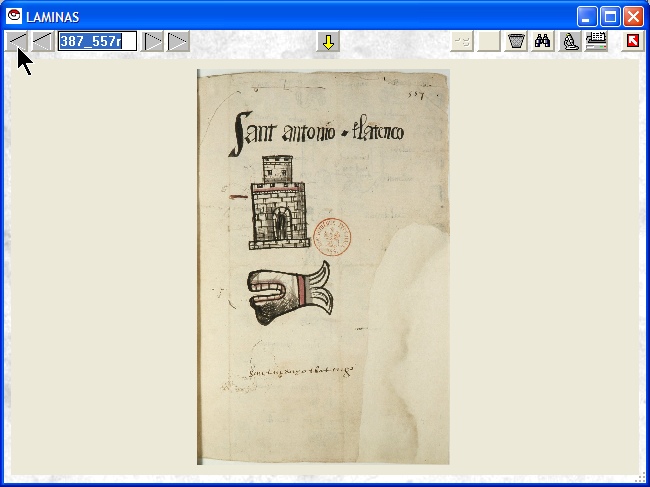 LAMINAS
387_557r
557
Sant antonio . tlatenco